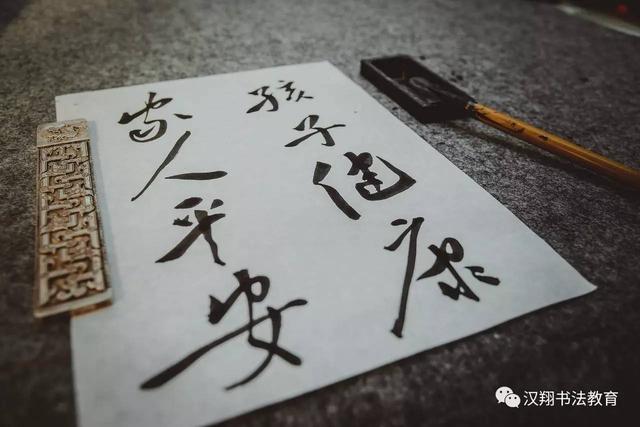 孩子健康
家人平安
汉翔书法教育